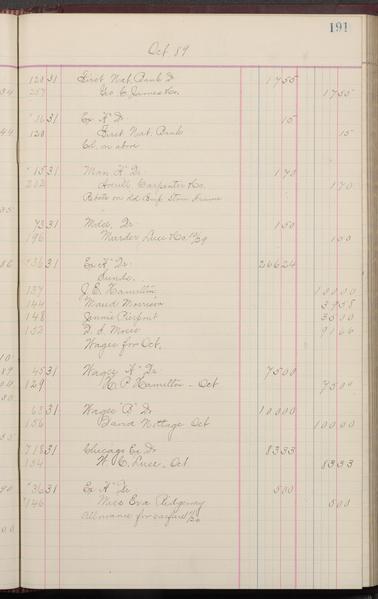 191
Oct. 89
120 31 First Nat. Bank Dr 1755
257 Geo. C. James & Co. 1755
36 31 Ex "A" Dr 15
120 First Nat. Bank 15
Col. on above
15 31 Man. "A" Dr. 170
202 Averill Carpenter & Co. 170
Rebate on old
73 31 Mdse. Dr. 150
196 Marder Luse & Co. 150
36 31 Ex "A" Dr. 26624
Sunds.
137 J. E. Hamilton 10000
144 Maud Morrison 3958
148 Jennie Pierpont 3500
152 9166
Wages for Oct.
45 31 Wages "A" Dr. 7500
129 H. P. Hamilton - Oct 7500
65 31 Wages "B" Dr 10000
156 David Nottage Oct 10000
718 31 Chicago Ex Dr 8333
154 W. C. Luse, Oct. 8333
36 31 Ex "A" Dr 500
146 Miss Eva Ridgeway 500
Allowance for